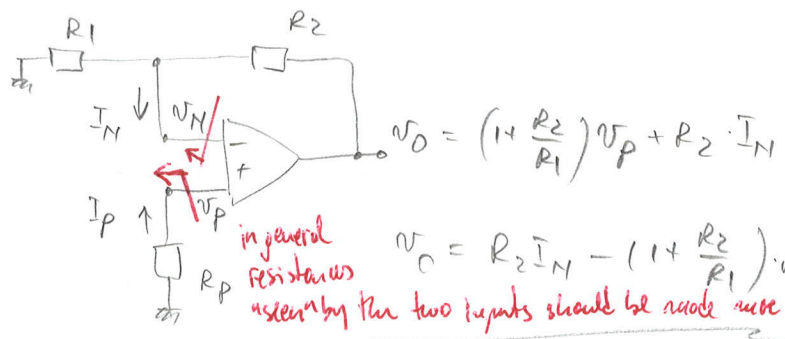 R1
R2
I_N ↓ v_N
−
+
v_O = (1 + R2/R1) v_P + R2 · I_N
I_P ↑ v_P
R_P
v_O = R2 I_N − (1 + R2/R1) ·
in general
resistances
"seen" by the two inputs should be made